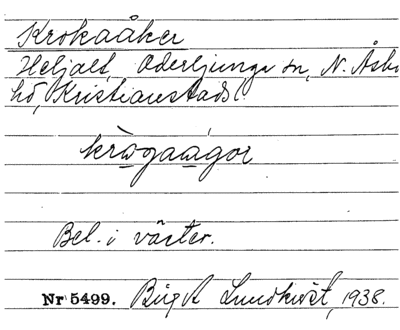 Krokaåker
Heljalt, Oderljunga sn, N. Åsbo
hd, Kristianstads l.
krògaågor
Bel. i väster.
Nr 5499. Birgit Lundkvist, 1938.